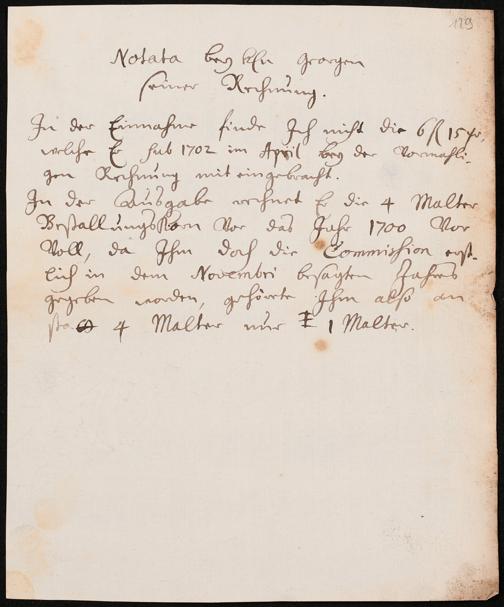 129
Notata bey Hn Georgen
seiner Rechnung.
In der Einnahme finde Ich nicht die 6 fl 15 xr,
welche Er sub 1702 im April bey der Vormahli-
gen Rechnung mit eingebracht.
In der Ausgabe rechnet Er die 4 Malter
Bestallungskorn Vor das Jahr 1700 Vor
Voll, da Ihm doch die Commission erst-
lich in dem Novembri besagten Jahres
gegeben worden, gehörete Ihm also an
statt 4 Malter nur 1 Malter.